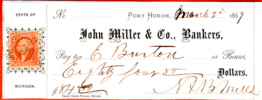 STATE OF
MICHIGAN.
No. PORT HURON, March 2d 1869
John Miller & Co., Bankers,
Pay to E Burton or Bearer,
Eighty four 00 Dollars.
$84.00